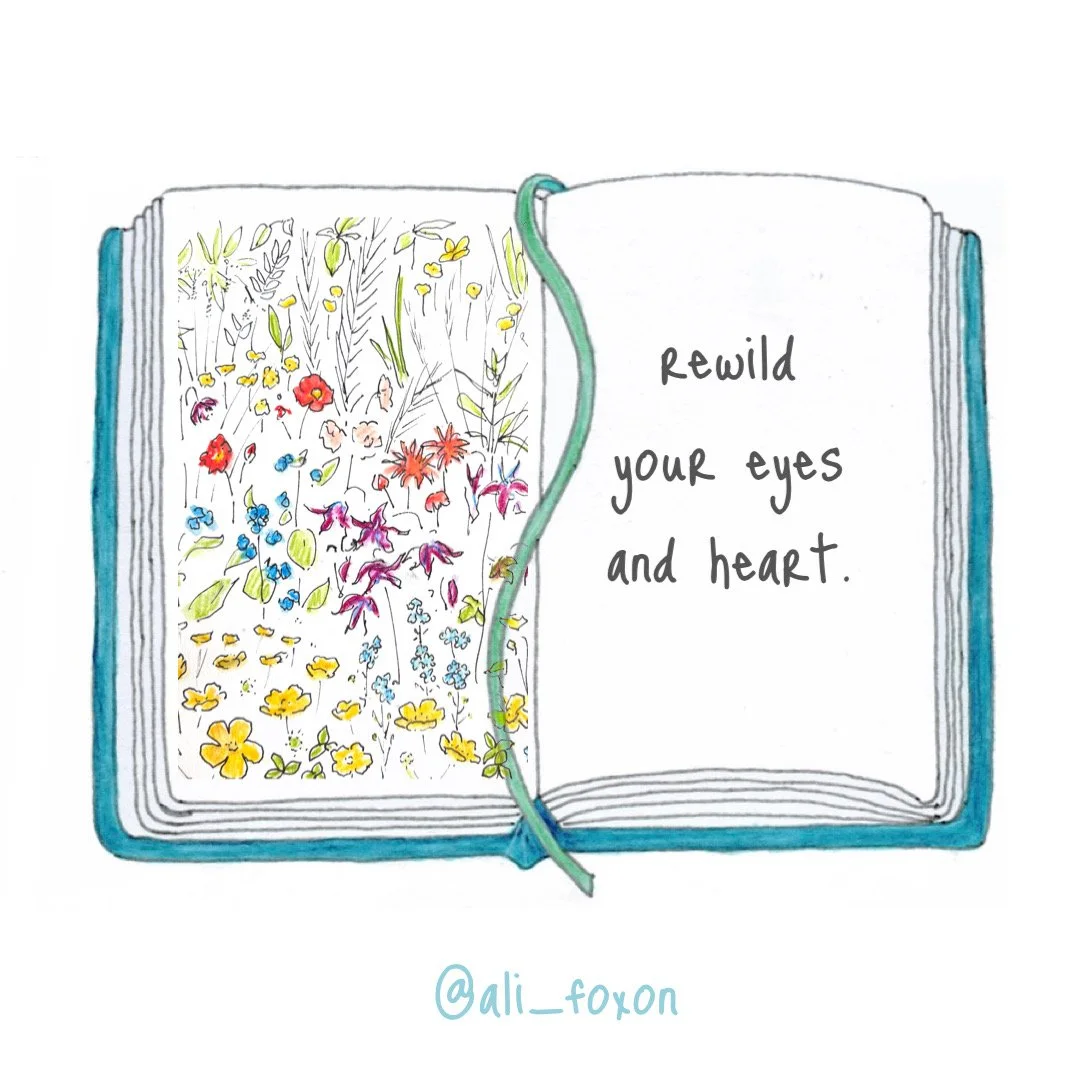 rewild
your eyes
and heart.
@ali_foxon